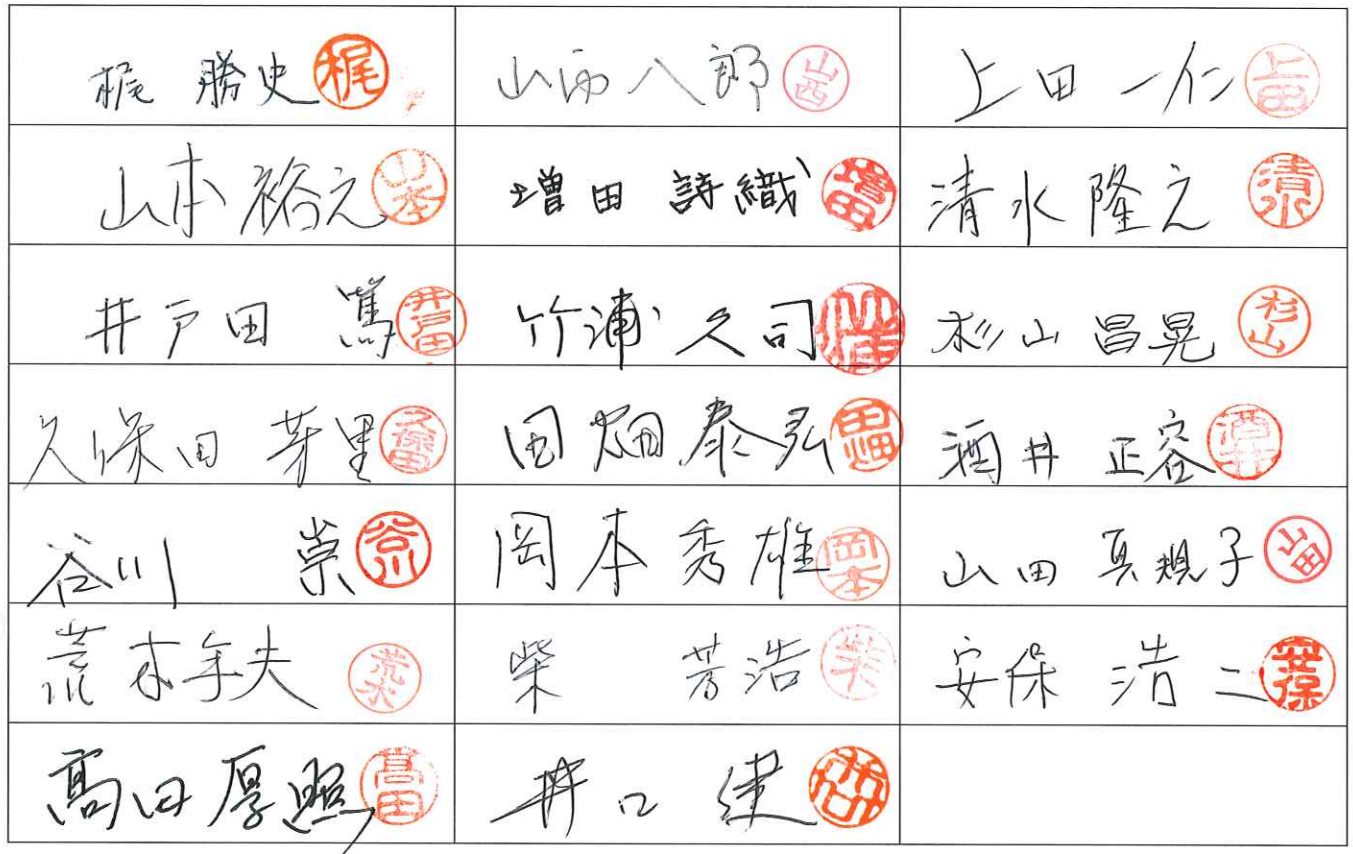 梶 勝史 梶 山西八郎 山西 上田 一仁 上田
山本裕之 山本 増田 詩織 増田 清水隆之 清水
井戸田 篤 井戸田 竹浦久司 杉山昌晃 杉山
久保田 芽里 久保田 田畑泰弘 田畑 酒井 正容 酒井
谷川 崇 谷川 岡本秀雄 岡本 山田真規子 山田
荒木 夫 荒木 柴 芳浩 柴 安保 浩二 安保
髙田厚照 髙田 井口 健